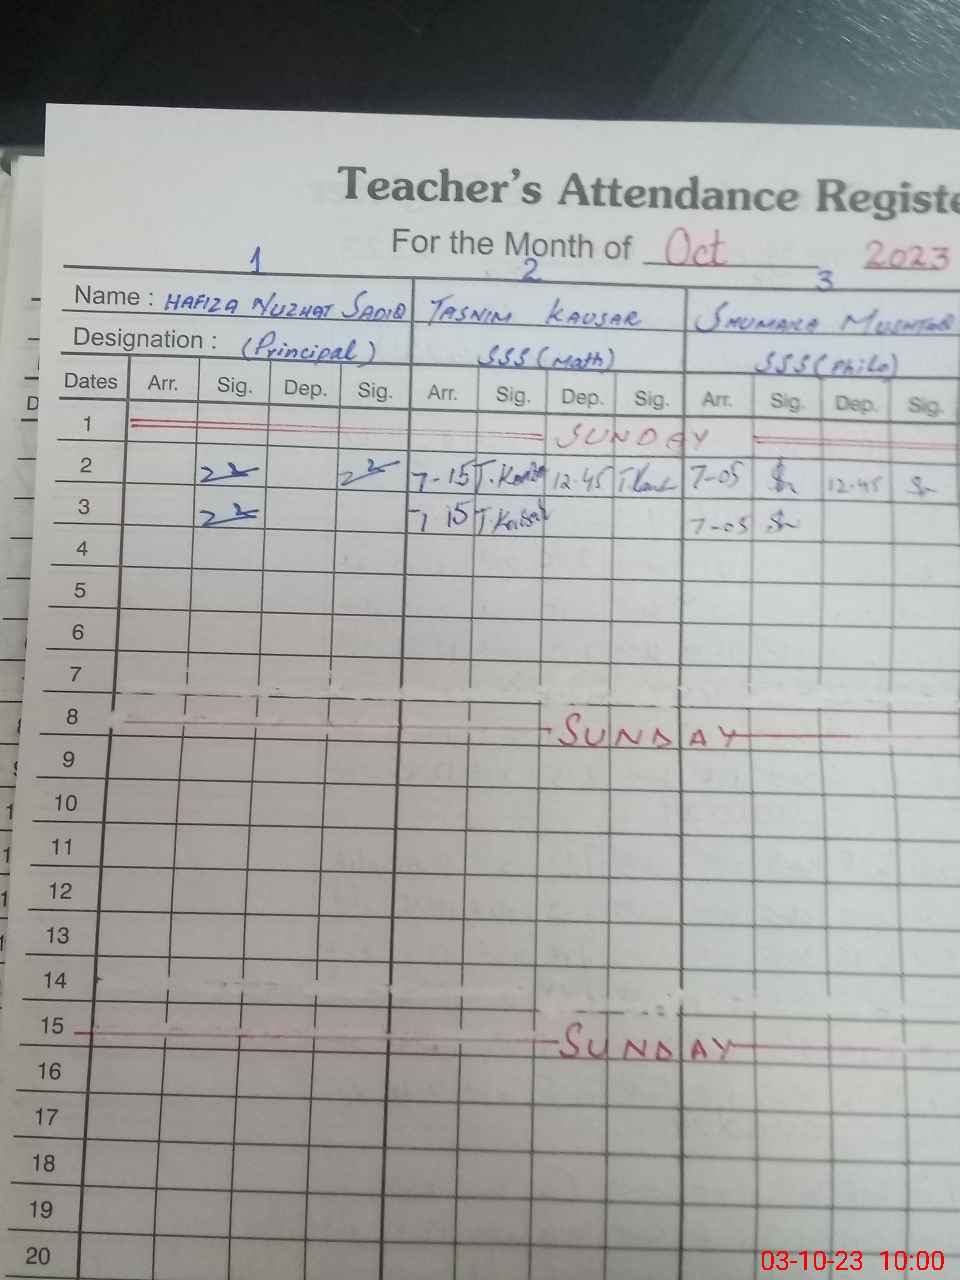 Teacher's Attendance Registe
For the Month of Oct 2023
1 2 3
Name : HAFIZA NUZHAT SADIQ TASNIM KAUSAR SHUMAILA MUSHTAQ
Designation : (Principal) SSS (Math) SSS (Philo)
Dates Arr. Sig. Dep. Sig. Arr. Sig. Dep. Sig. Arr. Sig. Dep. Sig.
1 SUNDAY
2 7-15 12.45 7-05 12.45
3 7 15 7-05
4
5
6
7
8 SUNDAY
9
10
11
12
13
14
15 SUNDAY
16
17
18
19
20
03-10-23 10:00